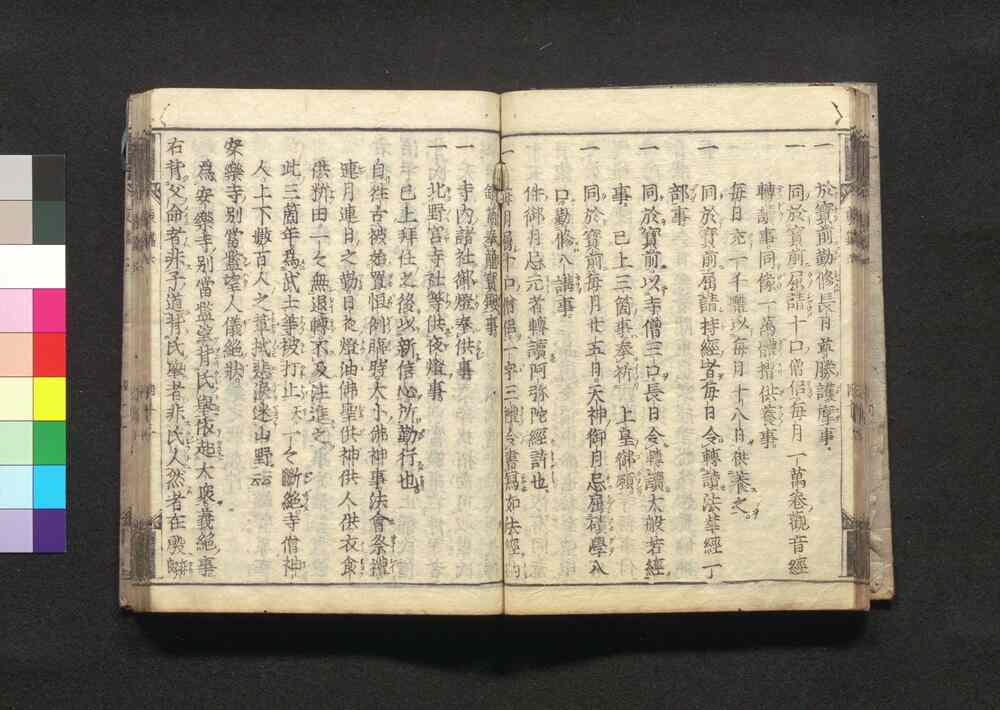 一 於寳前勤修長日尊勝護摩事
一 同於寳前屈請十口僧侶毎月一萬卷觀音經
轉讀事同像一萬體摺供養事
毎日充一千體以毎月十八日供養之
一 同於寳前屈請持經者毎日令轉讀法華經一
部事
一 同於寳前以寺僧三口長日令轉讀大般若經
事 已上三箇事奉祈 上皇御願
一 同於寳前毎月廿五日天神御月忌屈碩學八
口勤修八講事
件御月忌元者轉讀阿弥陀經許也
一 毎月屈十口僧侶一字三禮令書寫如法經
奉籠寳殿事
一 寺内諸社御燈奉供事
一 北野宮寺社等供夜燈事
已上拜任之後以新信心所勤行也
自徃古被始置恒例臨時大小佛神事法會祭禮
連月連日之勤日夜燈油佛聖供神供人供衣食
供料田一々無退轉不及注進之
此三箇年爲武士等被打止一々断絶寺僧神
人上下數百人之輩拭悲淚迷山野云云
安樂寺別當監室人儀絶狀
爲安樂寺別當監室背氏擧依起大衆義絶事
右背父命者非子道背氏擧者非氏人然者在